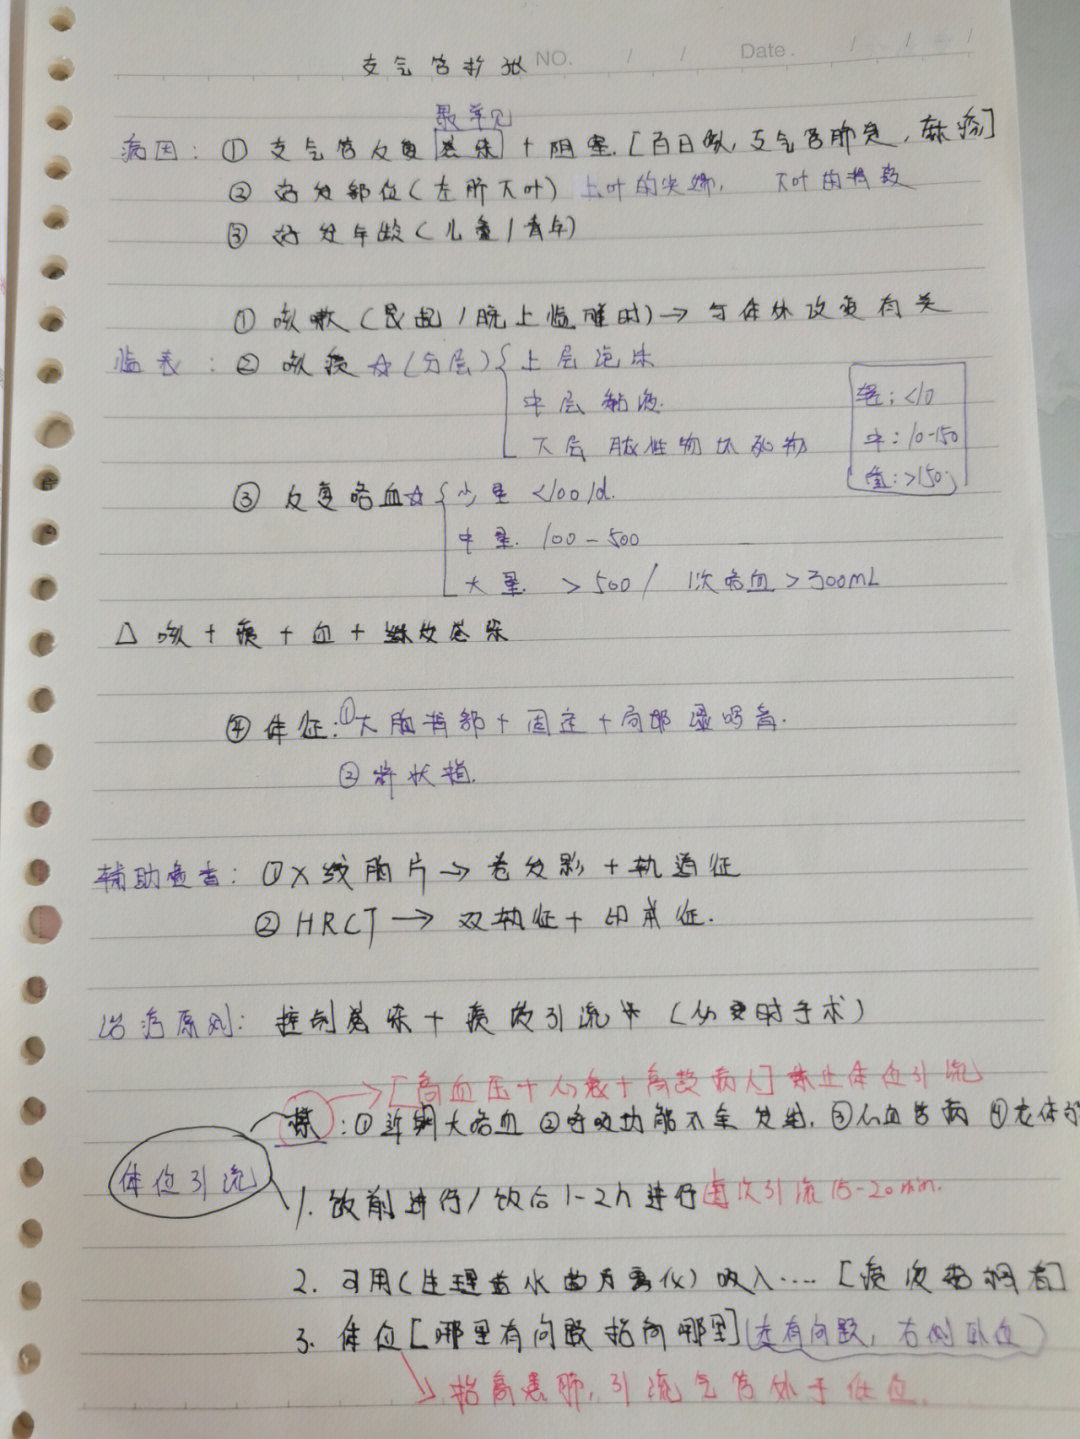 支气管扩张 NO. / / Date. / / /
最常见
病因：① 支气管反复[感染]+阻塞.[百日咳,支气管肺炎,麻疹]
② 好发部位(左肺下叶) 上叶的尖端, 下叶的背段
③ 好发年龄(儿童/青年)
① 咳嗽(晨起/晚上临睡时)→与体休改变有关
临表：② 咳痰☆(分层){上层泡沫
中层黏液. 轻:<10
下层 脓性物坏死物 中:10-150
重:>150
③ 反复咯血☆{少量 <100/d.
中量. 100-500
大量. >500/ 1次咯血>300mL
△ 咳+痰+血+继发感染
④ 体征:①大胸背部+固定+局部湿啰音.
② 杵状指.
辅助检查: ①X线胸片→卷发影+轨道征
② HRCT→双轨征+印戒征.
治疗原则: 控制感染+痰液引流☆(必要时手术)
→[高血压+心衰+高龄病人]禁止体位引流
禁:①近期大咯血 ②呼吸功能不全 发绀, ③心血管病 ④老体
体位引流
1. 饭前进行/饭后1-2h进行 每次引流15-20min.
2. 可用(生理盐水 雾化)吸入....[痰液黏稠者]
3. 体位[哪里有问题抬高哪里](左有问题, 右侧卧位)
抬高患肺,引流气管处于低位.